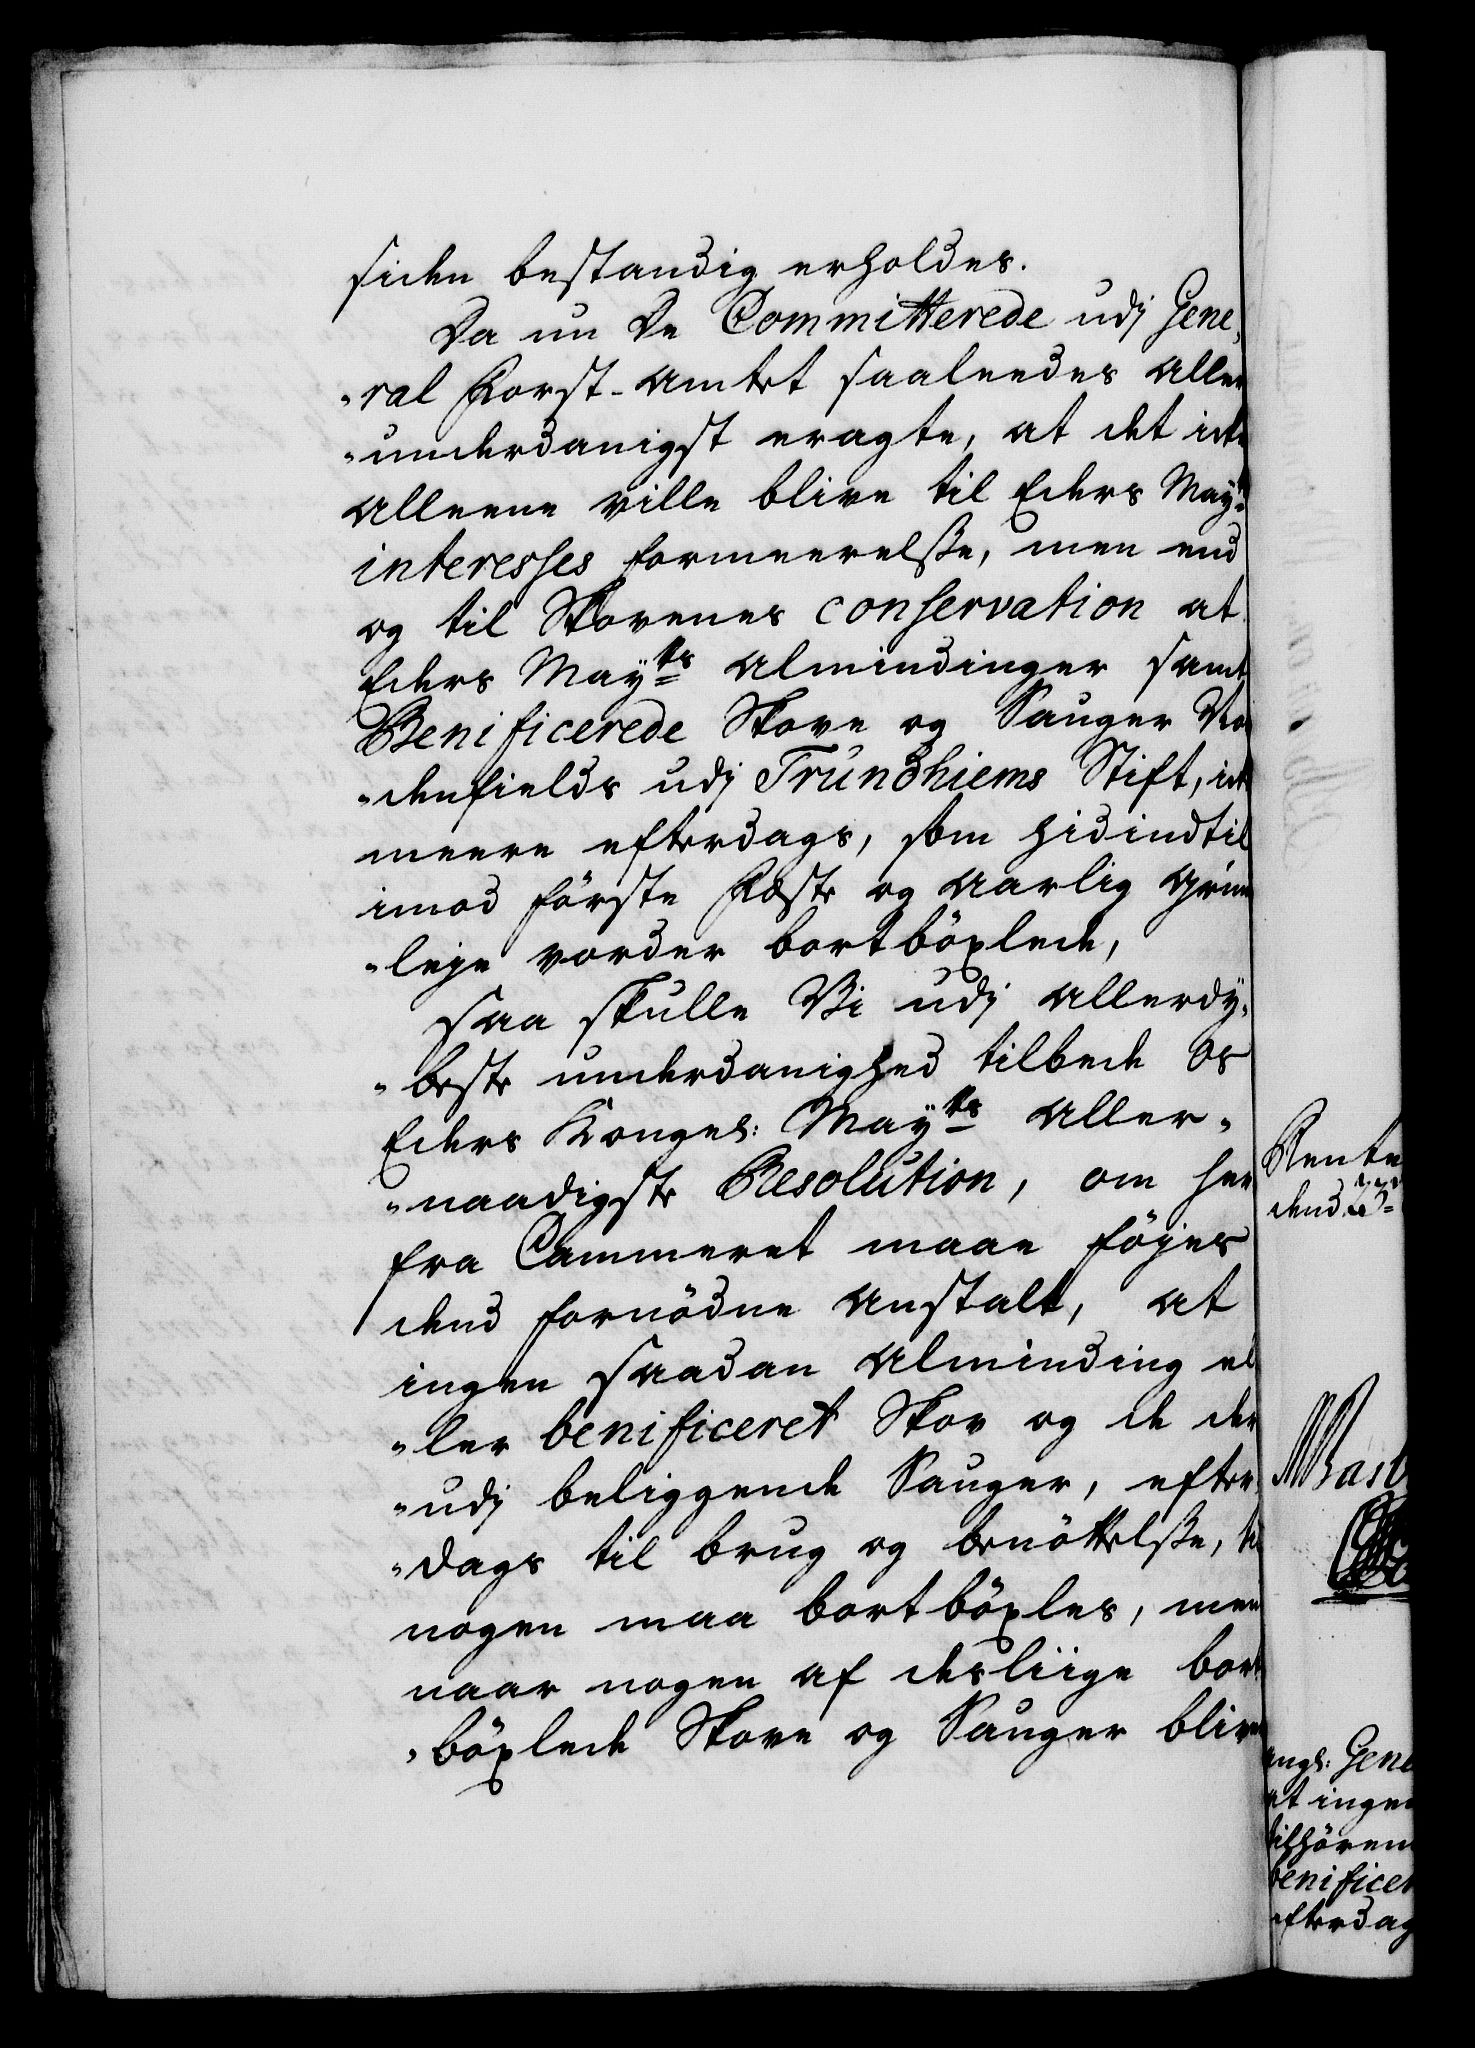 siden bestandig erholdes.
Da nu De Committerede udj Gene,
"ral Forst-Amtet saaleedes Aller
"underdanigst eragte, at det icke
Alleene ville blive til Eders Mayts
interesses formeerelsse, men end
og til Skovenes conservation at
Eders Mayts Almindinger samt
Benificerede Skove og Sauger Nor
"denfields udj Trundhiems Stift, ick
meere efterdags, som hidindtil
imod förste Fæste og Aarlig Grund
"leje vorder bortböxlede,
Saa skulle Vi udj Allerdy,
"beste underdanighed tilbede os
Eders Kongel: Mayts Aller-
"naadigste Resolution, om her
fra Cammeret maae föjes
dend fornödne Anstalt, at
ingen saadan Alminding el
"ler benificeret Skov og de der
"udj beliggende Sauger, efter
"dags til brug og benöttelsse, til
nogen maa bortböxles, men
naar nogen af desliige bort
"böxlede Skove og Sauger blive
Rente
dend 23
ongl: Gene
at ingen
tilhören
benificer
efterdag